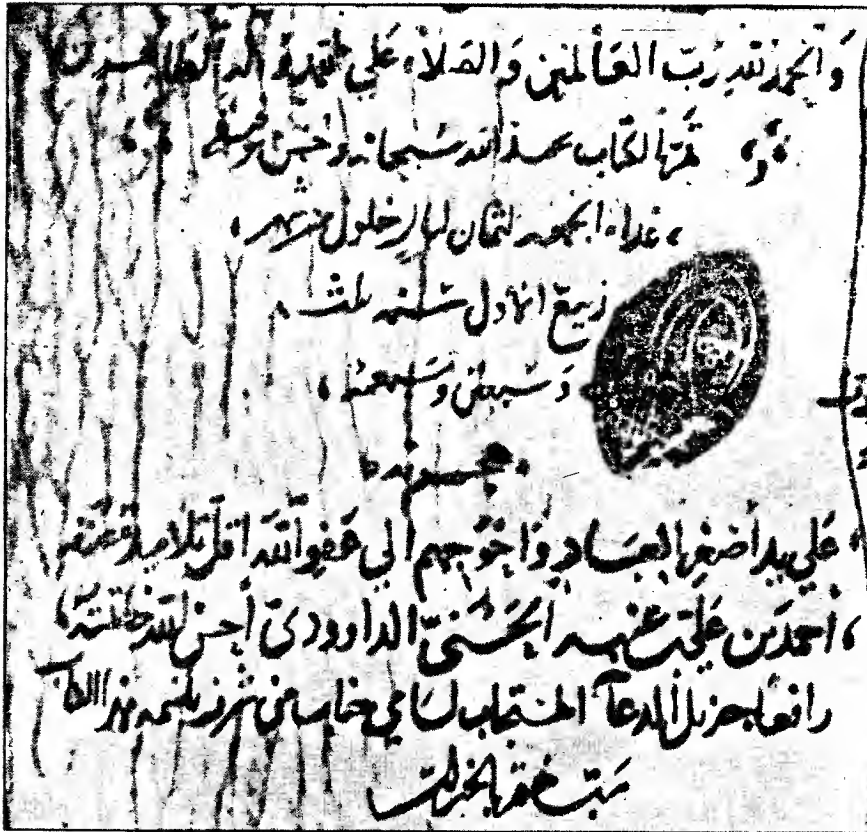 والحمد لله رب العالمين والصلاة علي محمد وآله الطاهرين
تم الكتاب بحمد الله سبحانه وحسن توفيقه
غداة الجمعه لثمان ليال خلون من شهر
ربيع الاول سنه ثلث
وسبعين وسبعمئة
علي يد أصغر العباد وأحوجهم الي عفو الله اقل تلاميذ مصنفه
أحمد بن علي بن عنبه الحسني الداوودي أحسن الله خاتمته
رافعا جزيل الدعآ المستجاب لسامي جناب من شرفه بنسخه هذا الكتاب